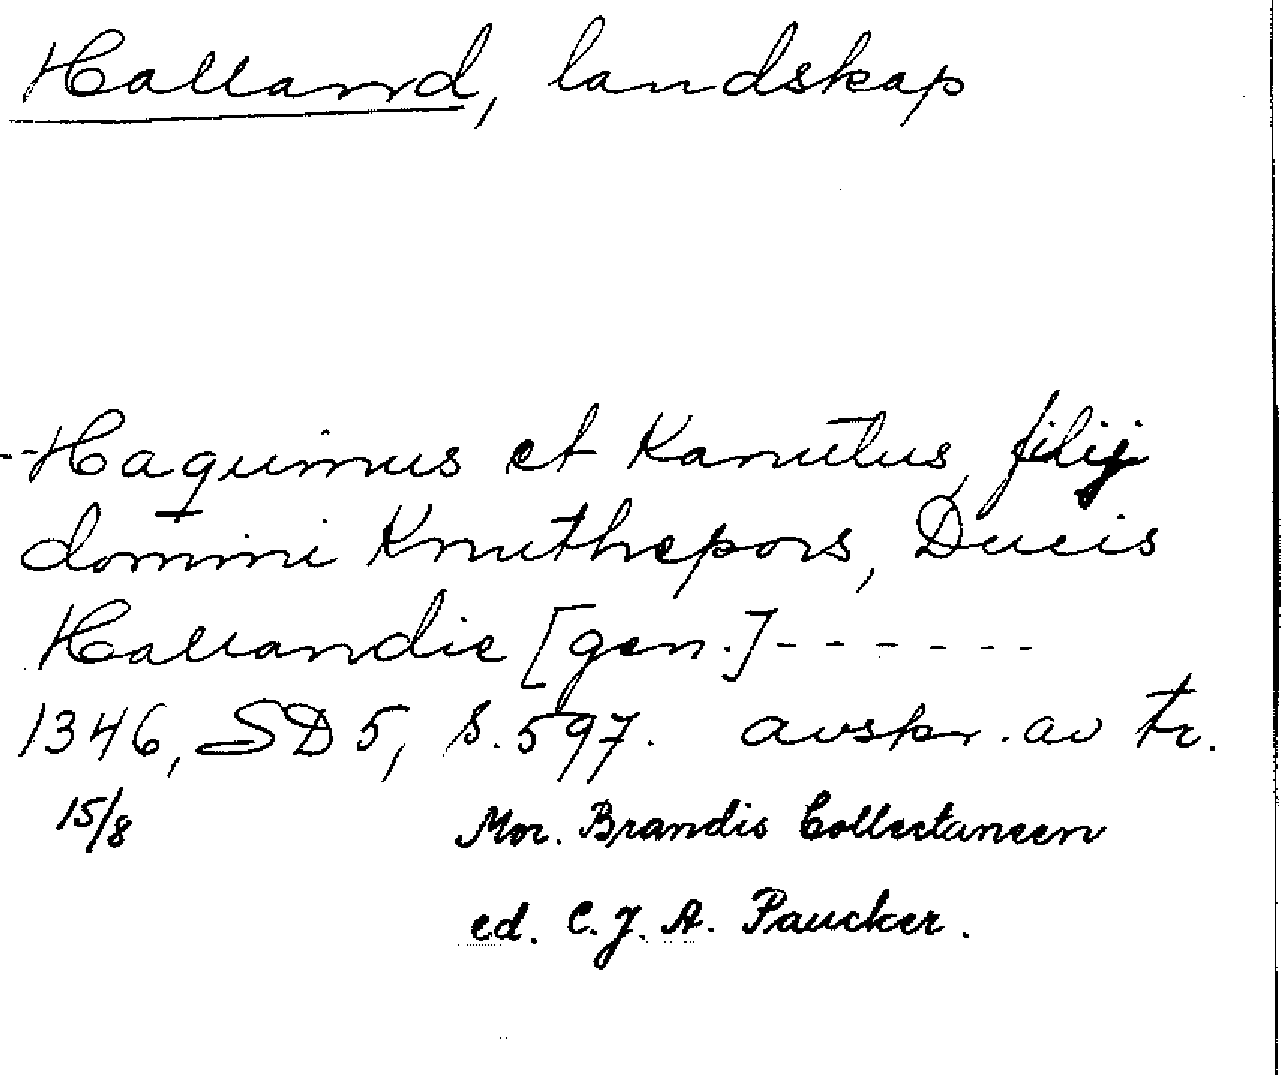 Halland, landskap
--Haquinus et Kanutus, filij
domini Knuthepors, Ducis
Hallandie [gen.]------
1346, SD 5, s. 597. avskr. av tr.
15/8 Mor. Brandis Collectaneen
ed. C. J. A. Paucker.